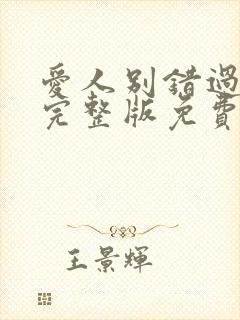 愛人別錯過
完整版免費
王景輝